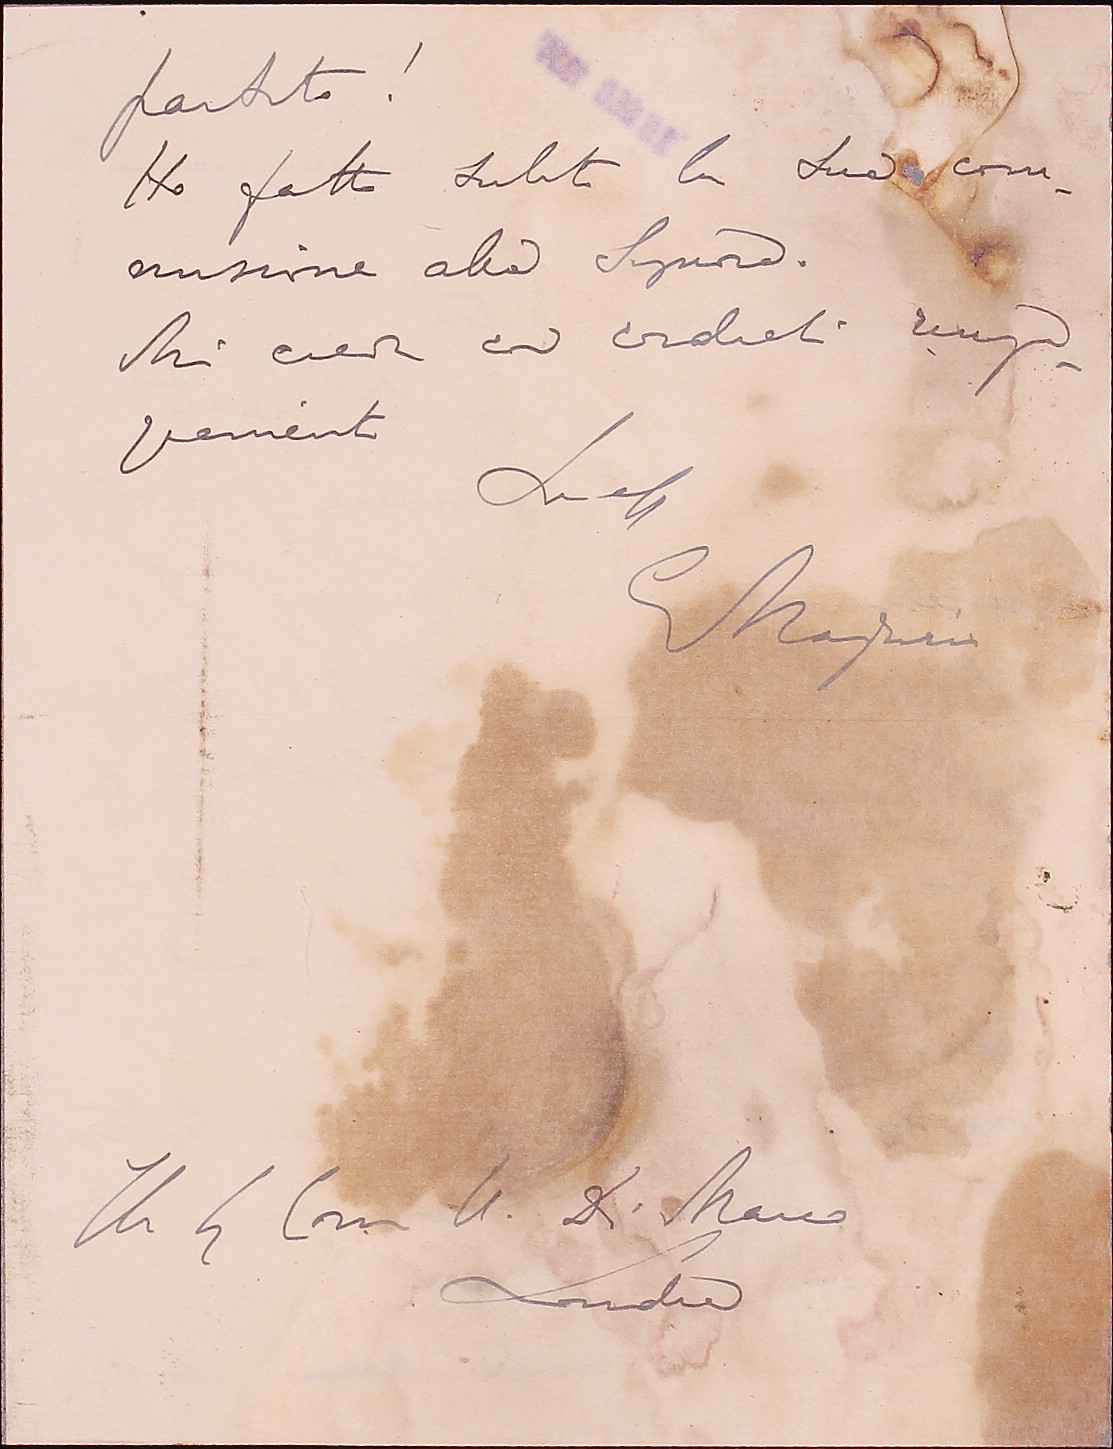 partito!
Ho fatto subito la sua com-
missione alla Signora.
Mi creda con cordiali ringra-
ziamenti
Suo aff
G Magrini
Ill Sig Comm U. Di Marco
Londra